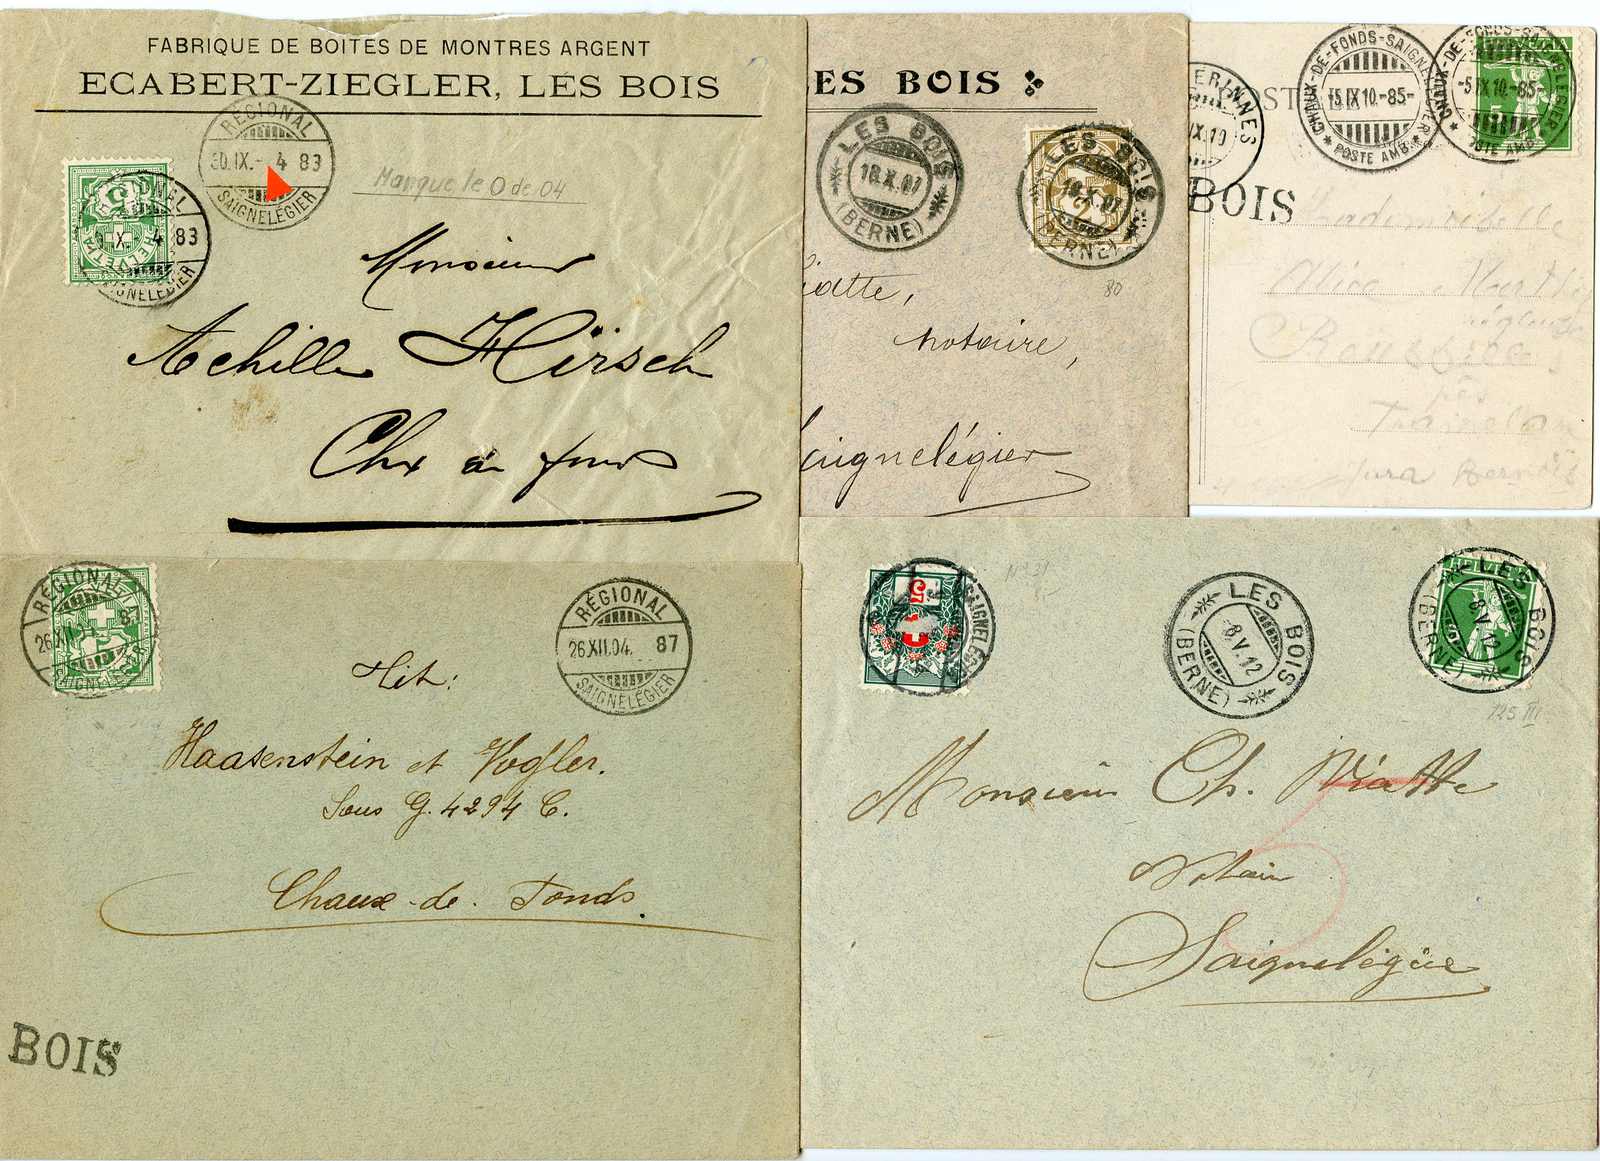 FABRIQUE DE BOITES DE MONTRES ARGENT
ECABERT-ZIEGLER, LES BOIS
RÉGIONAL
30.IX.- 4 83
SAIGNELÉGIER
Manque le 0 de 04
5
HELVETIA
X. 4 83
Monsieur
Achille Hirsch
Chx de fonds
LES BOIS
LES BOIS
18.X.07
(BERNE)
2
LES BOIS
18.X.07
(BERNE)
80
notaire,
Saignelégier
IX.10
POST
CHAUX-DE-FONDS-SAIGNELÉGIER
15.IX.10.-85-
POSTE AMB.
CHAUX-DE-FONDS-SAIGNELÉGIER
-5.IX.10.-85-
POSTE AMB.
BOIS
Mademoiselle
Alice
près
Tramelan
Jura Bernois
RÉGIONAL
26.XII. 87
SAIGNELÉGIER
5
RÉGIONAL
26.XII.04. 87
SAIGNELÉGIER
Tit:
Haasenstein et Vogler.
Sous G. 4294 C.
Chaux-de-Fonds.
BOIS
5
SAIGNELÉG
LES BOIS
-8.V.12
(BERNE)
HELVETIA
LES BOIS
8.V.12
(BERNE)
125 III
Monsieur Ch. Viatte
Notaire
Saignelégier
5